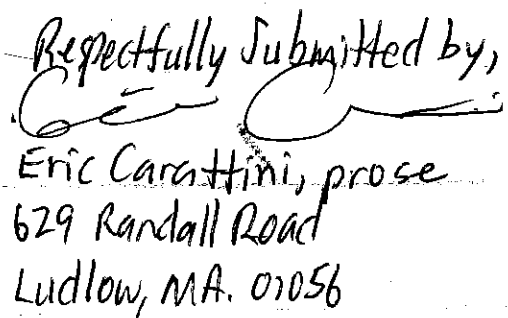 Respectfully Submitted by,
Eric Carattini, prose
629 Randall Road
Ludlow, MA. 01056